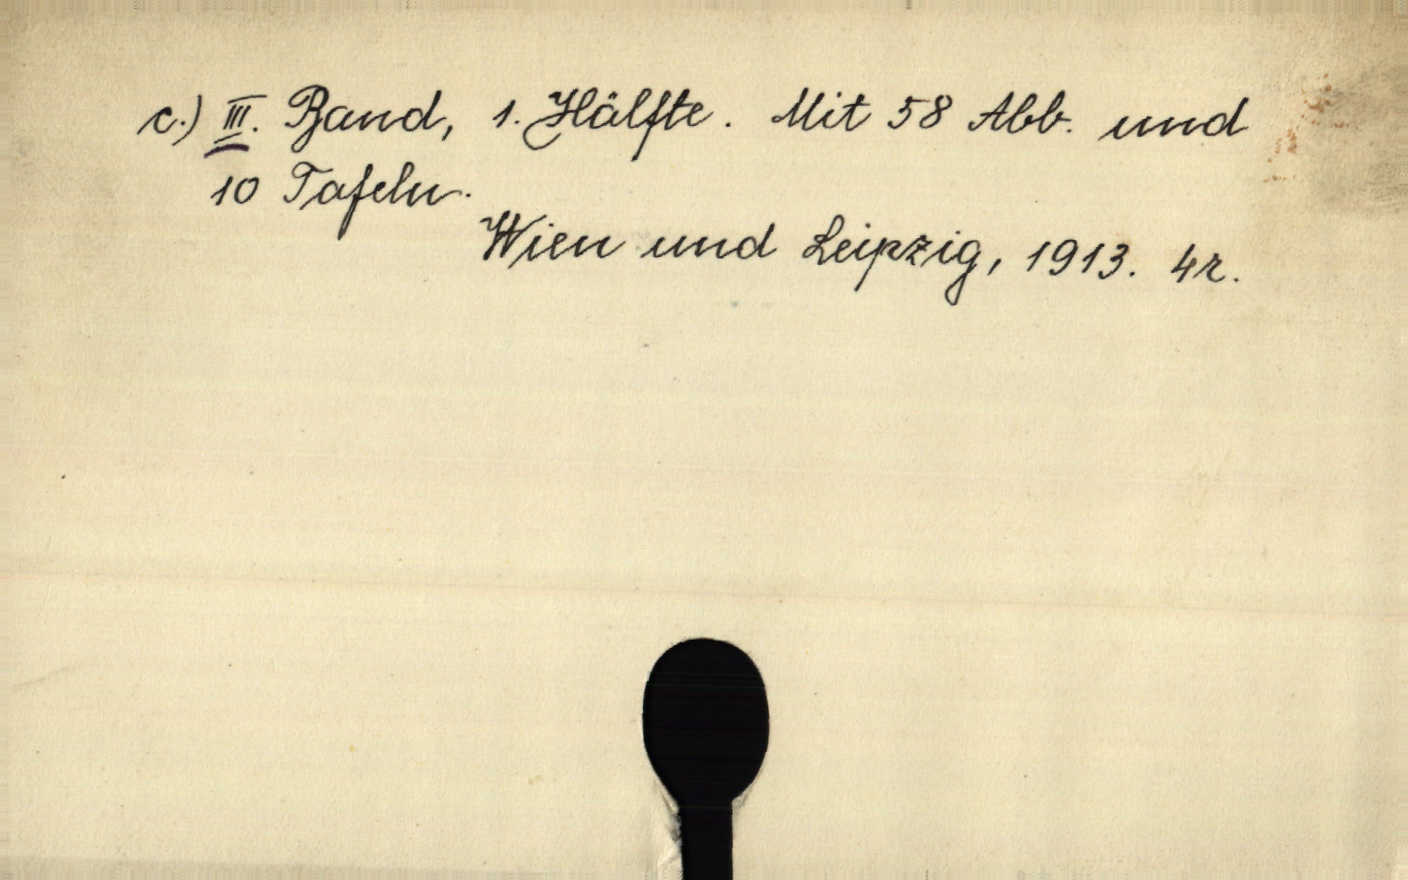 c.) III. Band, 1. Hälfte. Mit 58 Abb. und
10 Tafeln.
Wien und Leipzig, 1913. 4r.